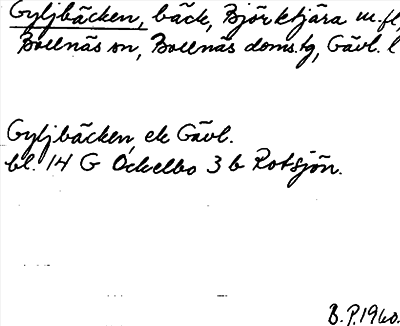 Gyljbäcken, bäck, Björktjära m.fl,
Bollnäs sn, Bollnäs doms.tg, Gävl. l
Gyljbäcken, ek Gävl.
bl. 14 G Ockelbo 3 b Rotsjön.
B.P.1960.